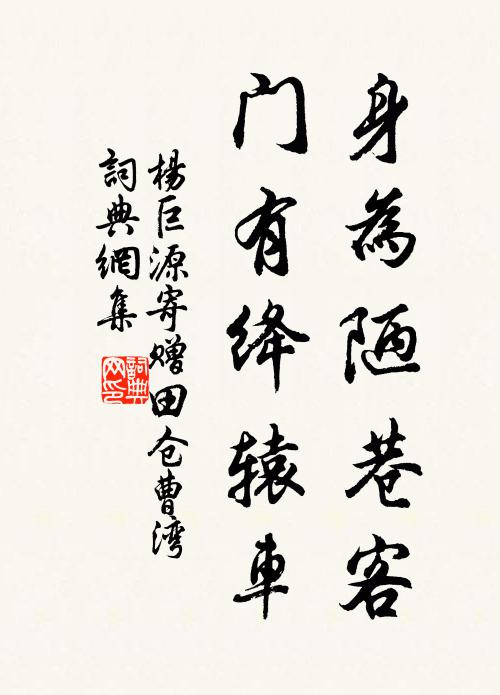 身為陋巷客
门有绛辕車
楊巨源寄赠田仓曹湾
詞典網集
詞典网印